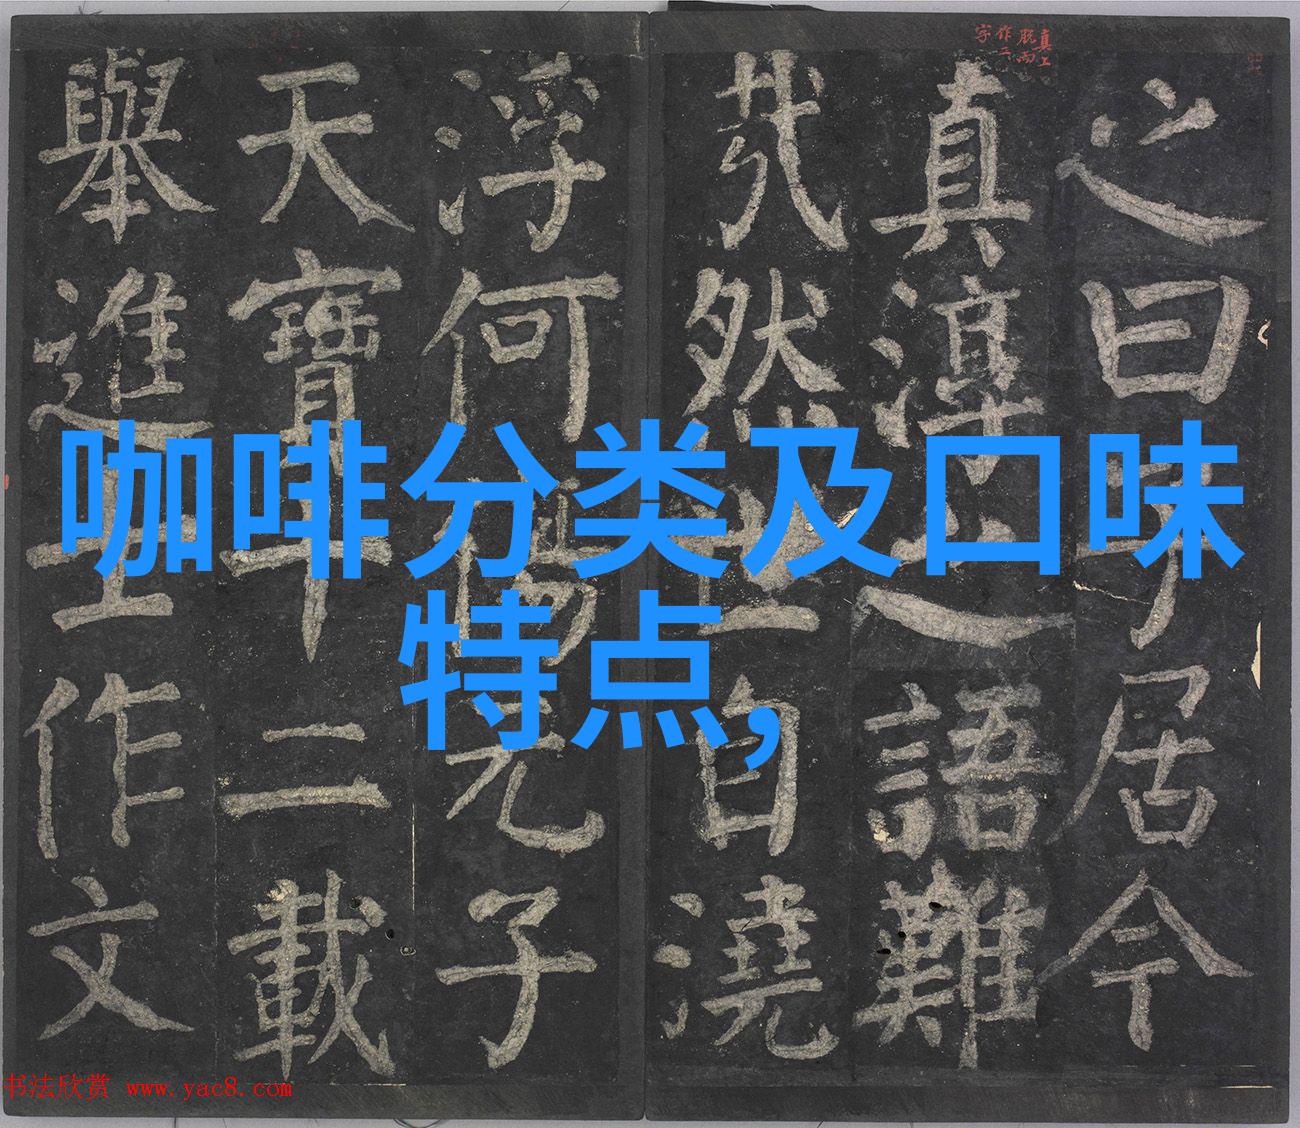 真上
脫而
作二
字
之曰子居今
真淳之語難
哉然世自澆
浮何傷元子
天寶十二載
舉進士作文
咖啡分类及口味
特点,
书法欣赏 www.yac8.com